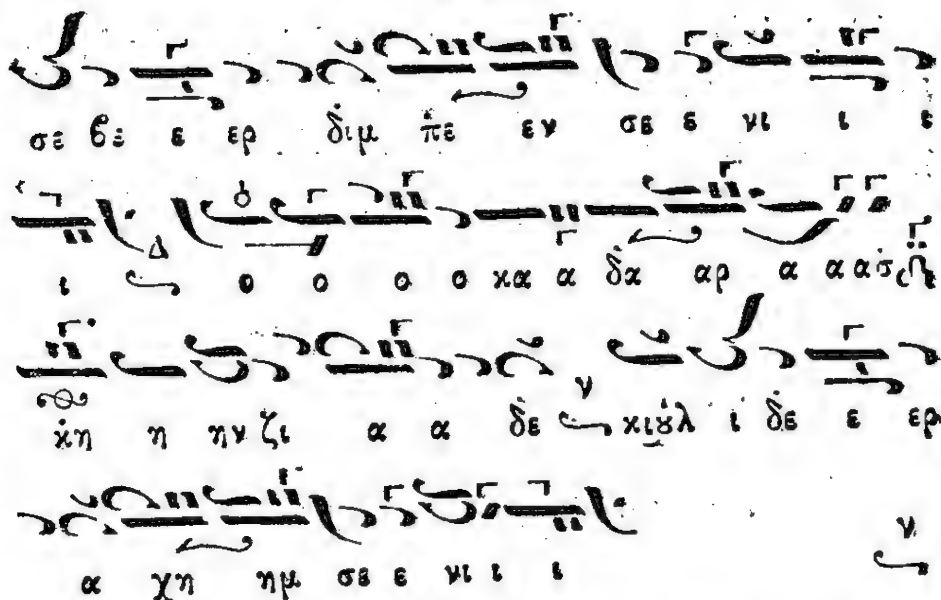 σε ϐε ε ερ δ̇ιμ π̇ε εν σε ε νι ι ι
ι Δ ο ο ο ο κα α δ̇α αρ α α α σ̇
κ̇η η ην ζι α α δ̇ε ν κιȣ̇λ ι δ̇ε ε ερ
α χη ημ σε ε νι ι ι ν